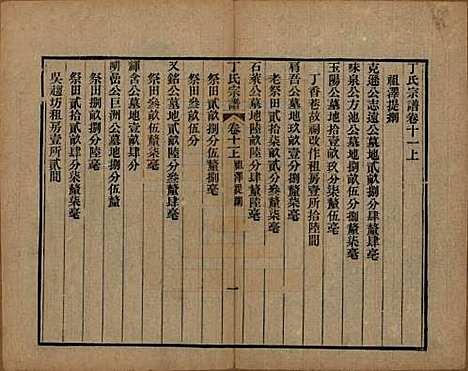 丁氏宗譜卷十一上
祖澤提綱
克遜公志遠公墓地貳畝捌分肆釐肆毫
味泉公方池公墓地捌畝伍分捌釐柒毫
玉陽公墓地拾壹畝玖分柒釐伍毫
丁香巷故祠改作租房壹所拾陸間
肩吾公墓地玖畝壹分捌釐柒毫
老祭田貳拾柒畝貳分叁釐柒毫
石萊公墓地陸畝陸分陸釐
祭田貳畝陸分捌釐柒毫
丁氏宗譜
卷十一上
祖澤提綱
一
祭田叁畝伍分
又銘公墓地貳畝貳分叁釐肆毫
祭田叁畝伍釐柒毫
輝含公墓地壹畝肆分
明岳公巨洲公墓地捌分伍釐
祭田捌畝捌分陸毫
祭田貳拾貳畝肆分伍釐柒毫
吳趨坊租房壹所貳間